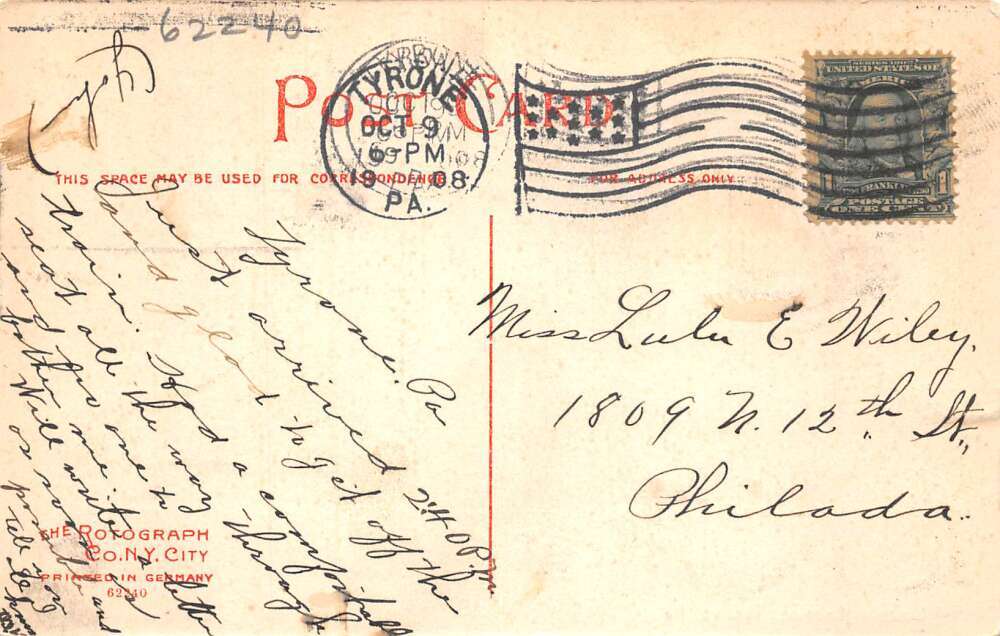 62240
POST CARD
TYRONE
OCT 9
6-PM
1908
PA.
SERIES 1902
UNITED STATES OF
FRANKLIN
POSTAGE
1 ONE CENT 1
THIS SPACE MAY BE USED FOR CORRESPONDENCE
FOR ADDRESS ONLY
Tyrone. Pa
Just arrived 2:40 P.m
and glad to get off the
train. Had a comfortable
seat all the way through
and no one to
bother me.
Will write a letter
as soon as
possible and
tell you
Miss Lulu E Wiley.
1809 N. 12th St.,
Philada.
THE ROTOGRAPH
CO. N.Y. CITY
PRINTED IN GERMANY
62240